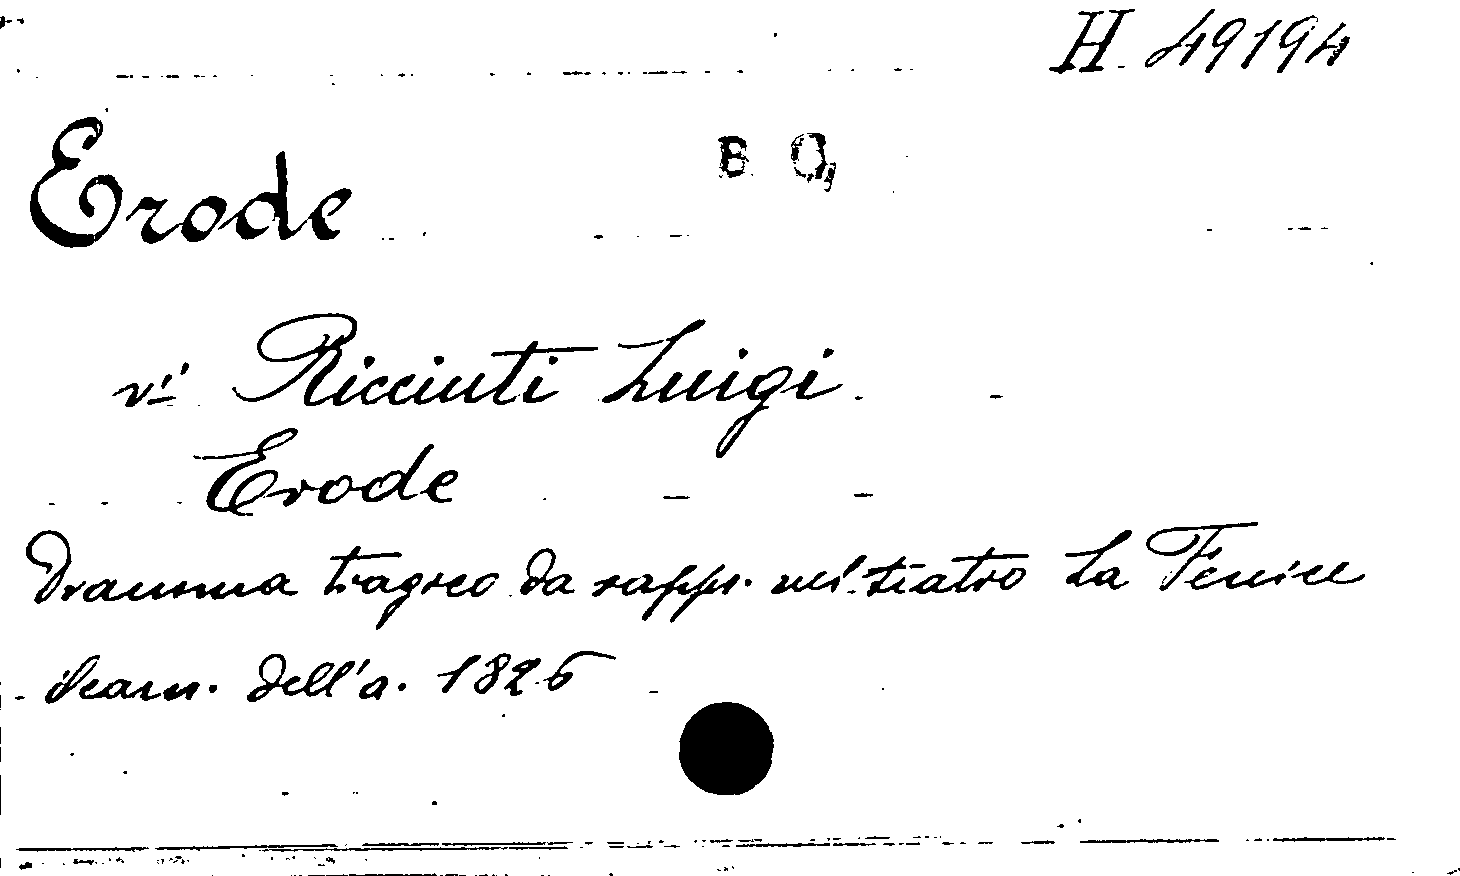 H. 49194
B Q,
Erode
vi Ricciuti Luigi.
Erode
Dramma tragico da rapp. nel teatro La Fenice
il carn. dell'a. 1826